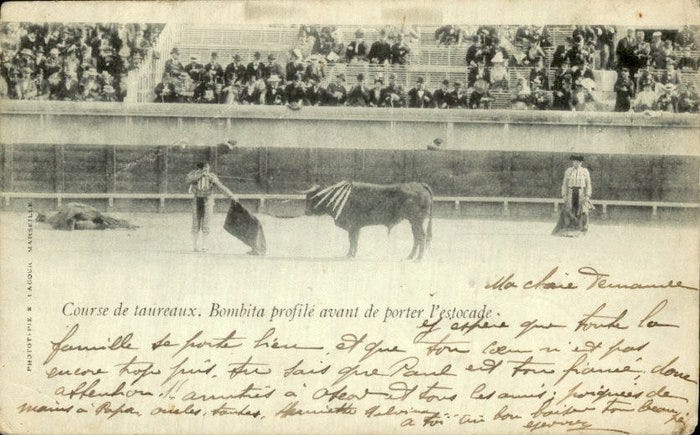 PHOTOTYPIE LACOUR MARSEILLE
Course de taureaux. Bombita profilé avant de porter l'estocade.
Ma chère Fernande
j'espère que toute la
famille se porte bien, et que ton cœur n'est pas
encore trop pris, tu sais que Paul est ton fiancé, donc
attention. amitiés à Oscar et tous les amis, poignées de
mains à Papa, oncles, tantes, Henriette
à toi un bon baiser ton beau